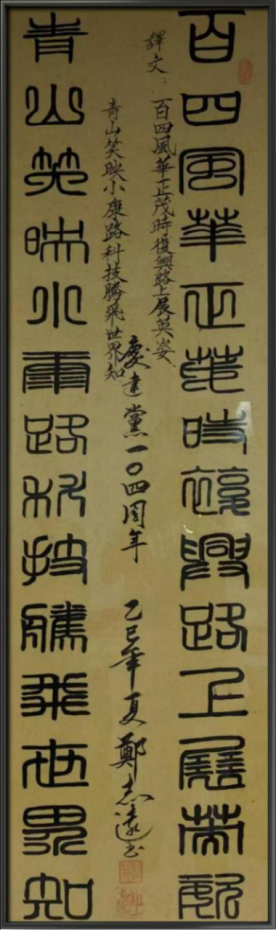 百四風華正茂時復興路上展英姿
青山笑映小康路科技騰飛世界知
譯文：
百四風華正茂時復興路上展英姿
青山笑映小康路科技勝飛世界知
慶建黨一〇四周年
乙巳年夏鄭志遠书